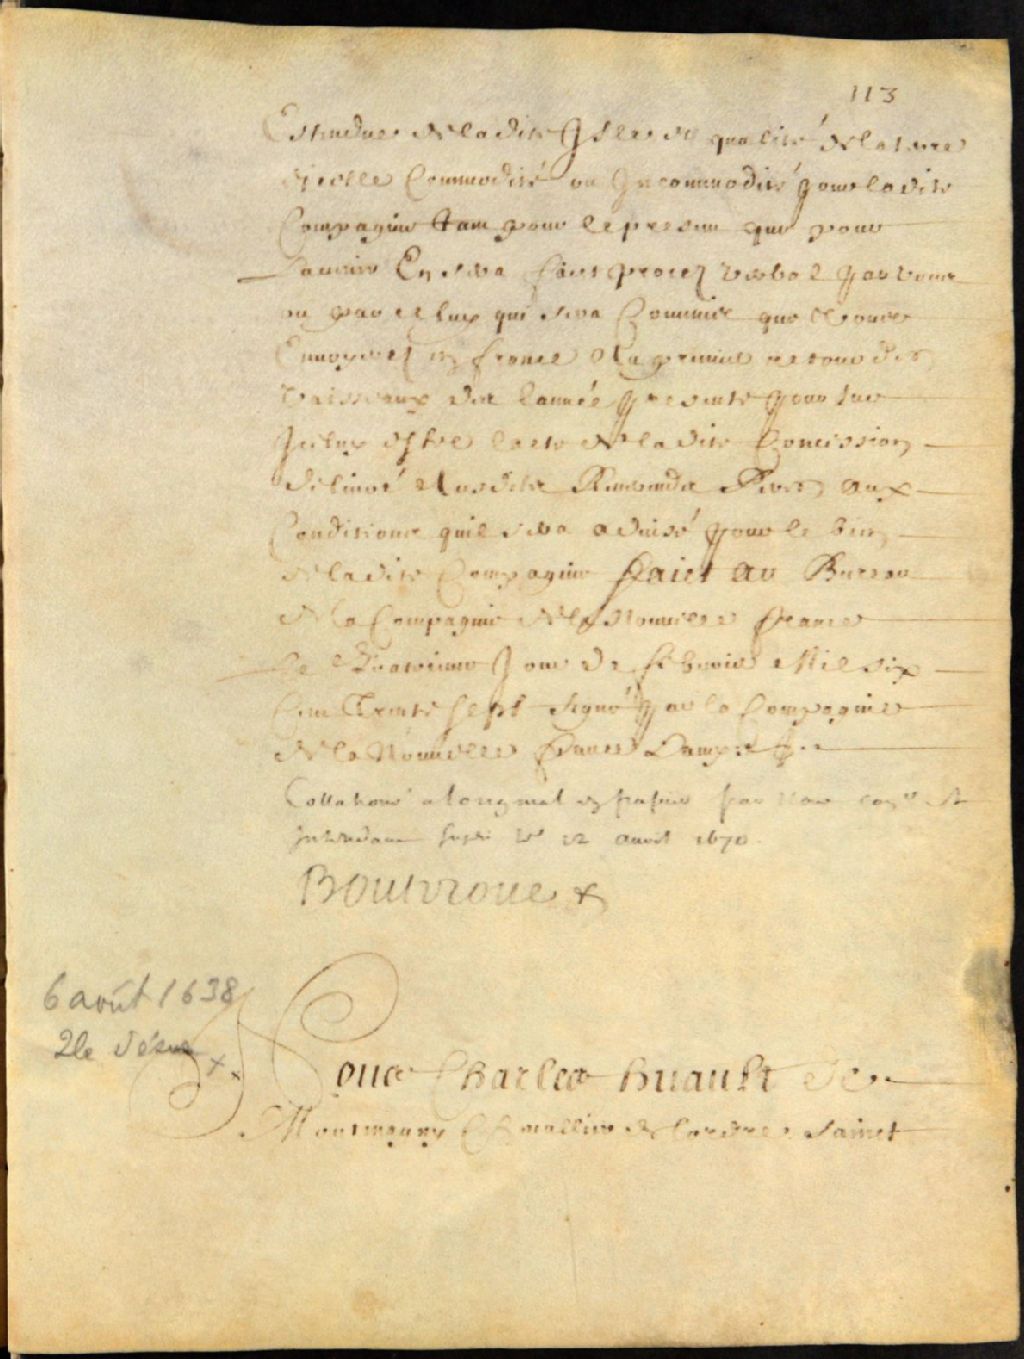 113
Estendue de ladite Isle et qualité de la terre
d'icelle Commodité ou Incommodité pour ladite
Compagnie tam pour le presen que pour
Laduenir En sera faict procez verbal par vous
ou par celuy qui sera Commis que vous
Enuoyerez en france au premier retour des
vaisseaux de l'année presente pour sur
Iceluy estre l'acte de ladite Concession
deliuré ausdits Reuerends Peres aux
Conditions quil sera aduisé pour le bien
de ladite Compagnie faict au Bureau
de la Compagnie de la Nouuelle france
le jour de febvrier Mil six
Cens Trente sept signé par la Compagnie
de la Nouuelle france Lamy
Collationé a loriginal en papier par Nous con.er et
Intendant le 12 auril 1670
Boutroue
6 août 1638
Ile Jésus
Nous Charles Huault de
Montmagny Cheuallier de l'ordre sainct